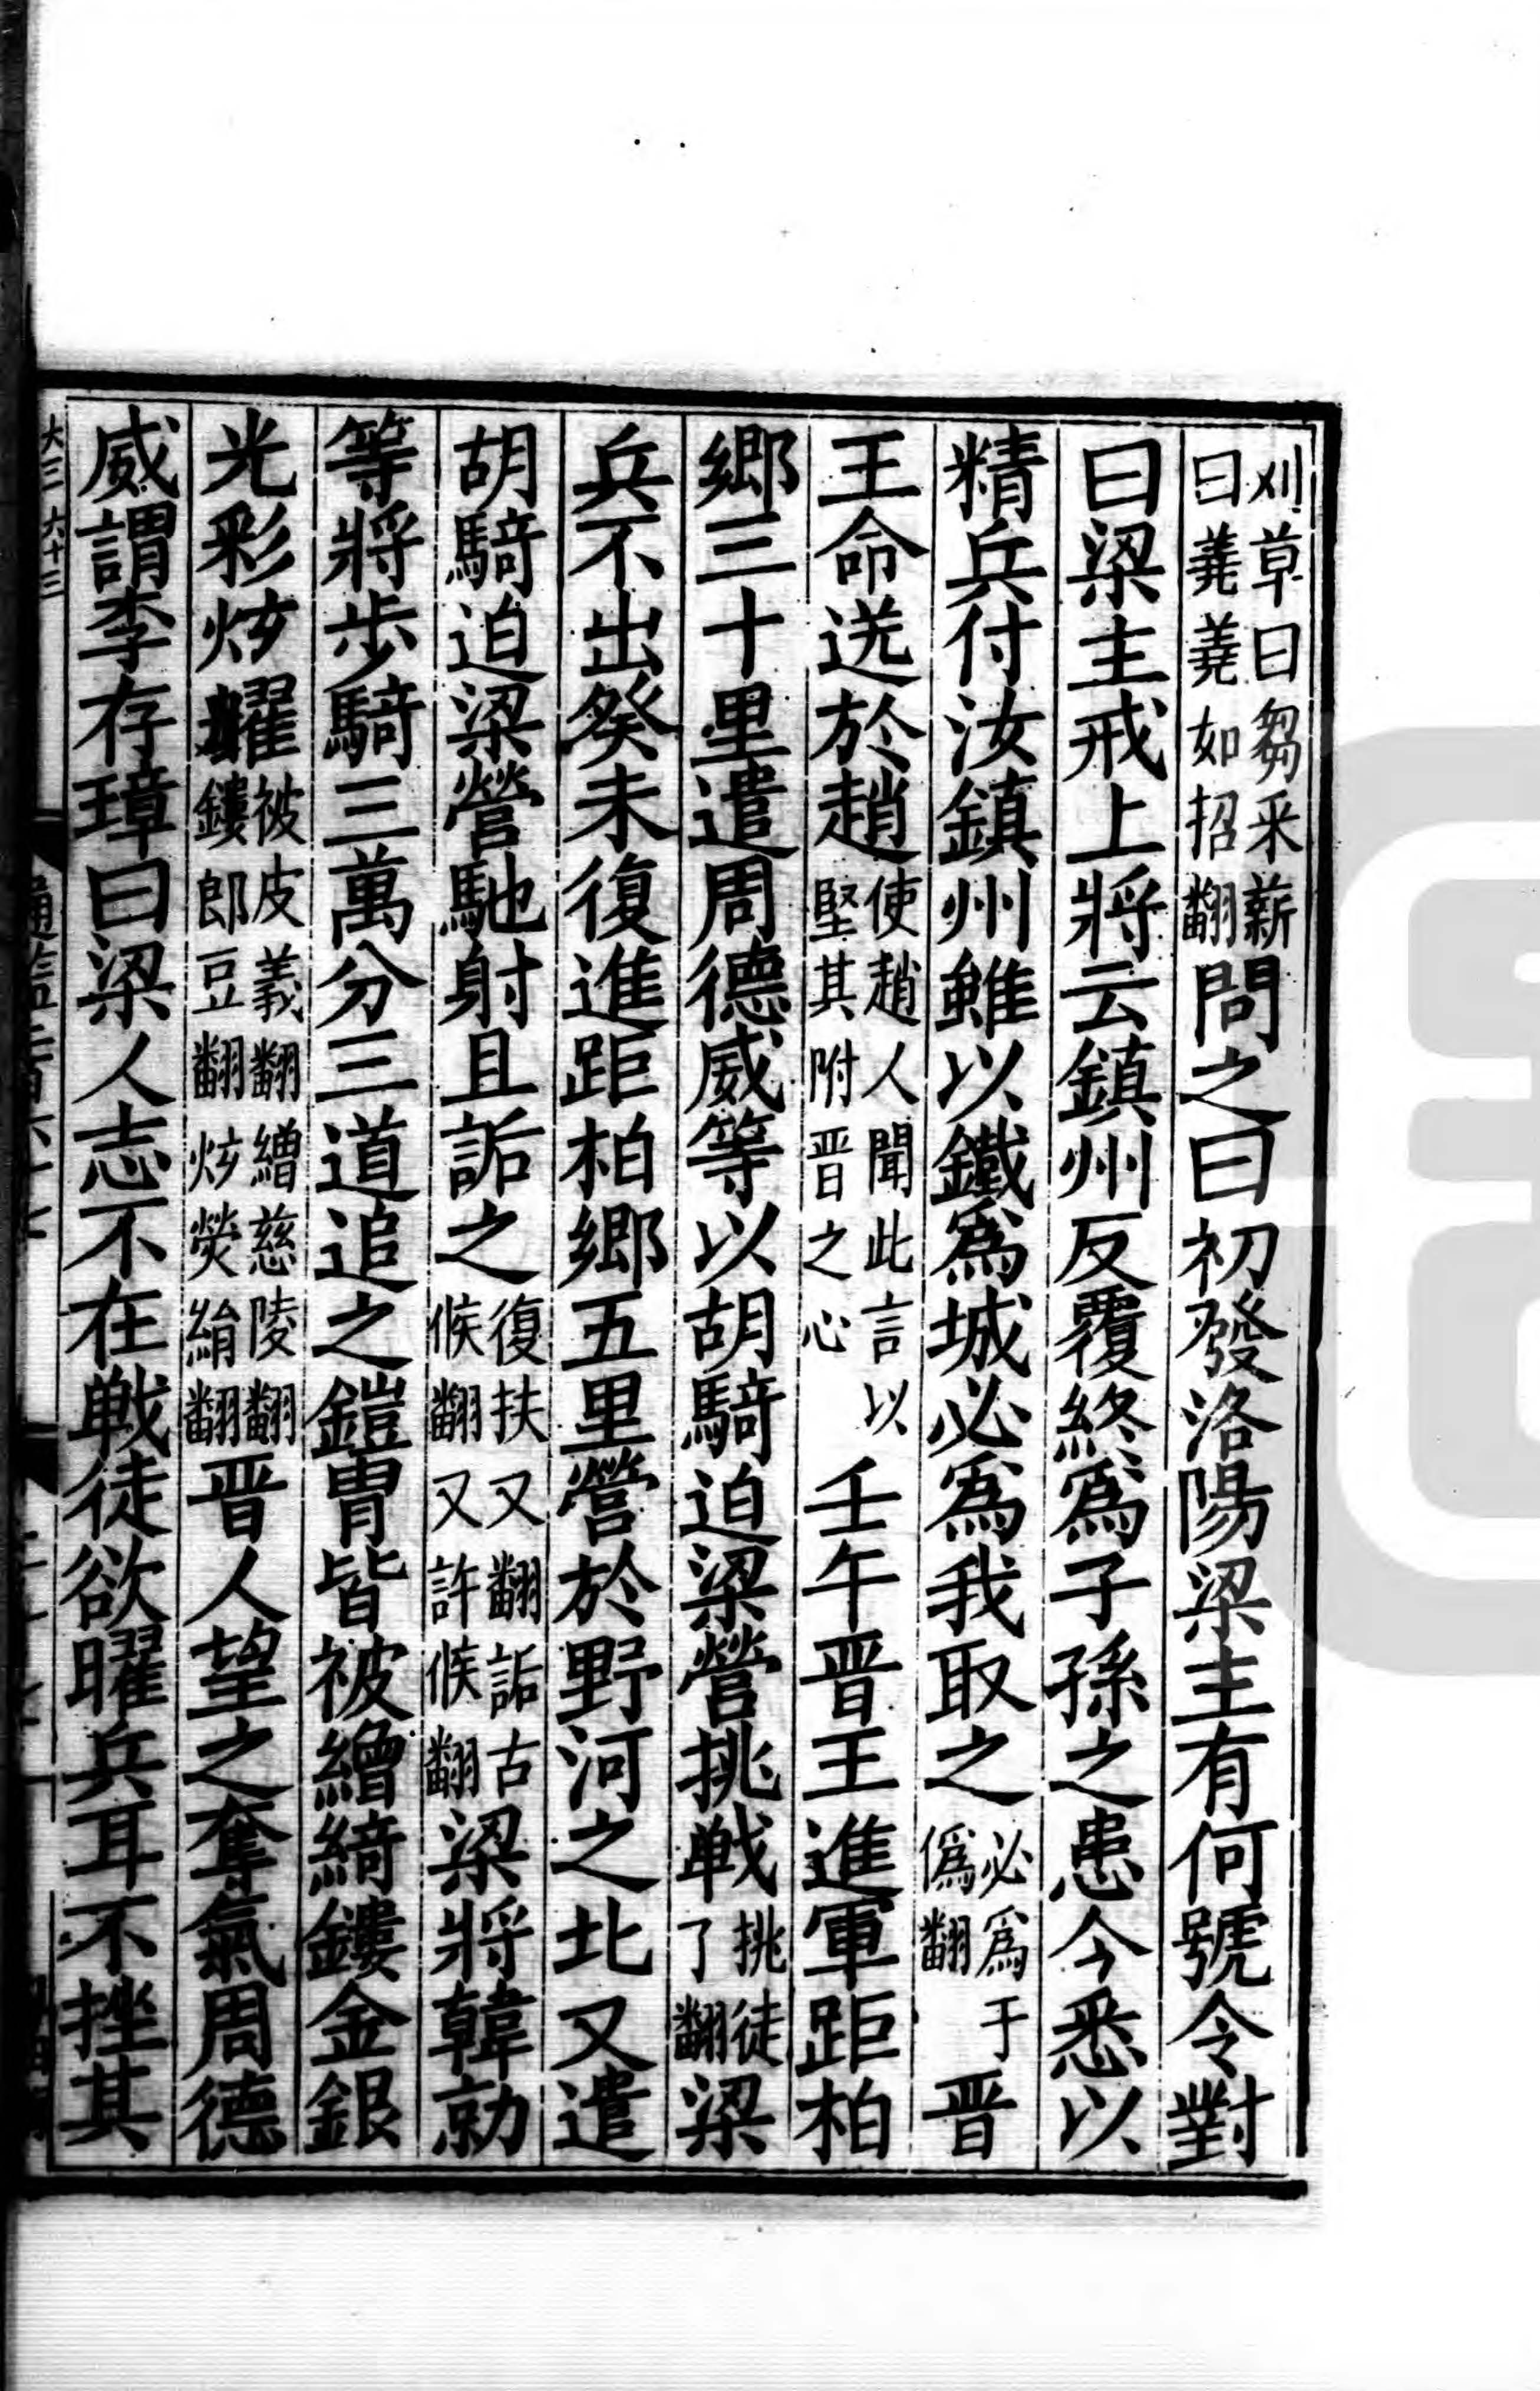 刈草曰芻采薪曰蕘蕘如招翻問之曰初發洛陽梁主有何號令對
曰梁主戒上將云鎮州反覆終為子孫之患今悉以
精兵付汝鎮州雖以鐵為城必為我取之必為于偽翻晉
王命送於趙使趙人聞此言以堅其附晉之心壬午晉王進軍距柏
鄉三十里遣周德威等以胡騎迫梁營挑戰挑徒了翻梁
兵不出癸未復進距柏鄉五里營於野河之北又遣
胡騎迫梁營馳射且詬之復扶又翻詬古候翻又許候翻梁將韓勍
等將步騎三萬分三道追之鎧胄皆被繒綺鏤金銀
光彩炫耀被皮義翻繒慈陵翻鏤郎豆翻炫熒絹翻晉人望之奪氣周德
威謂李存璋曰梁人志不在戰徒欲曜兵耳不挫其
大三 六十三